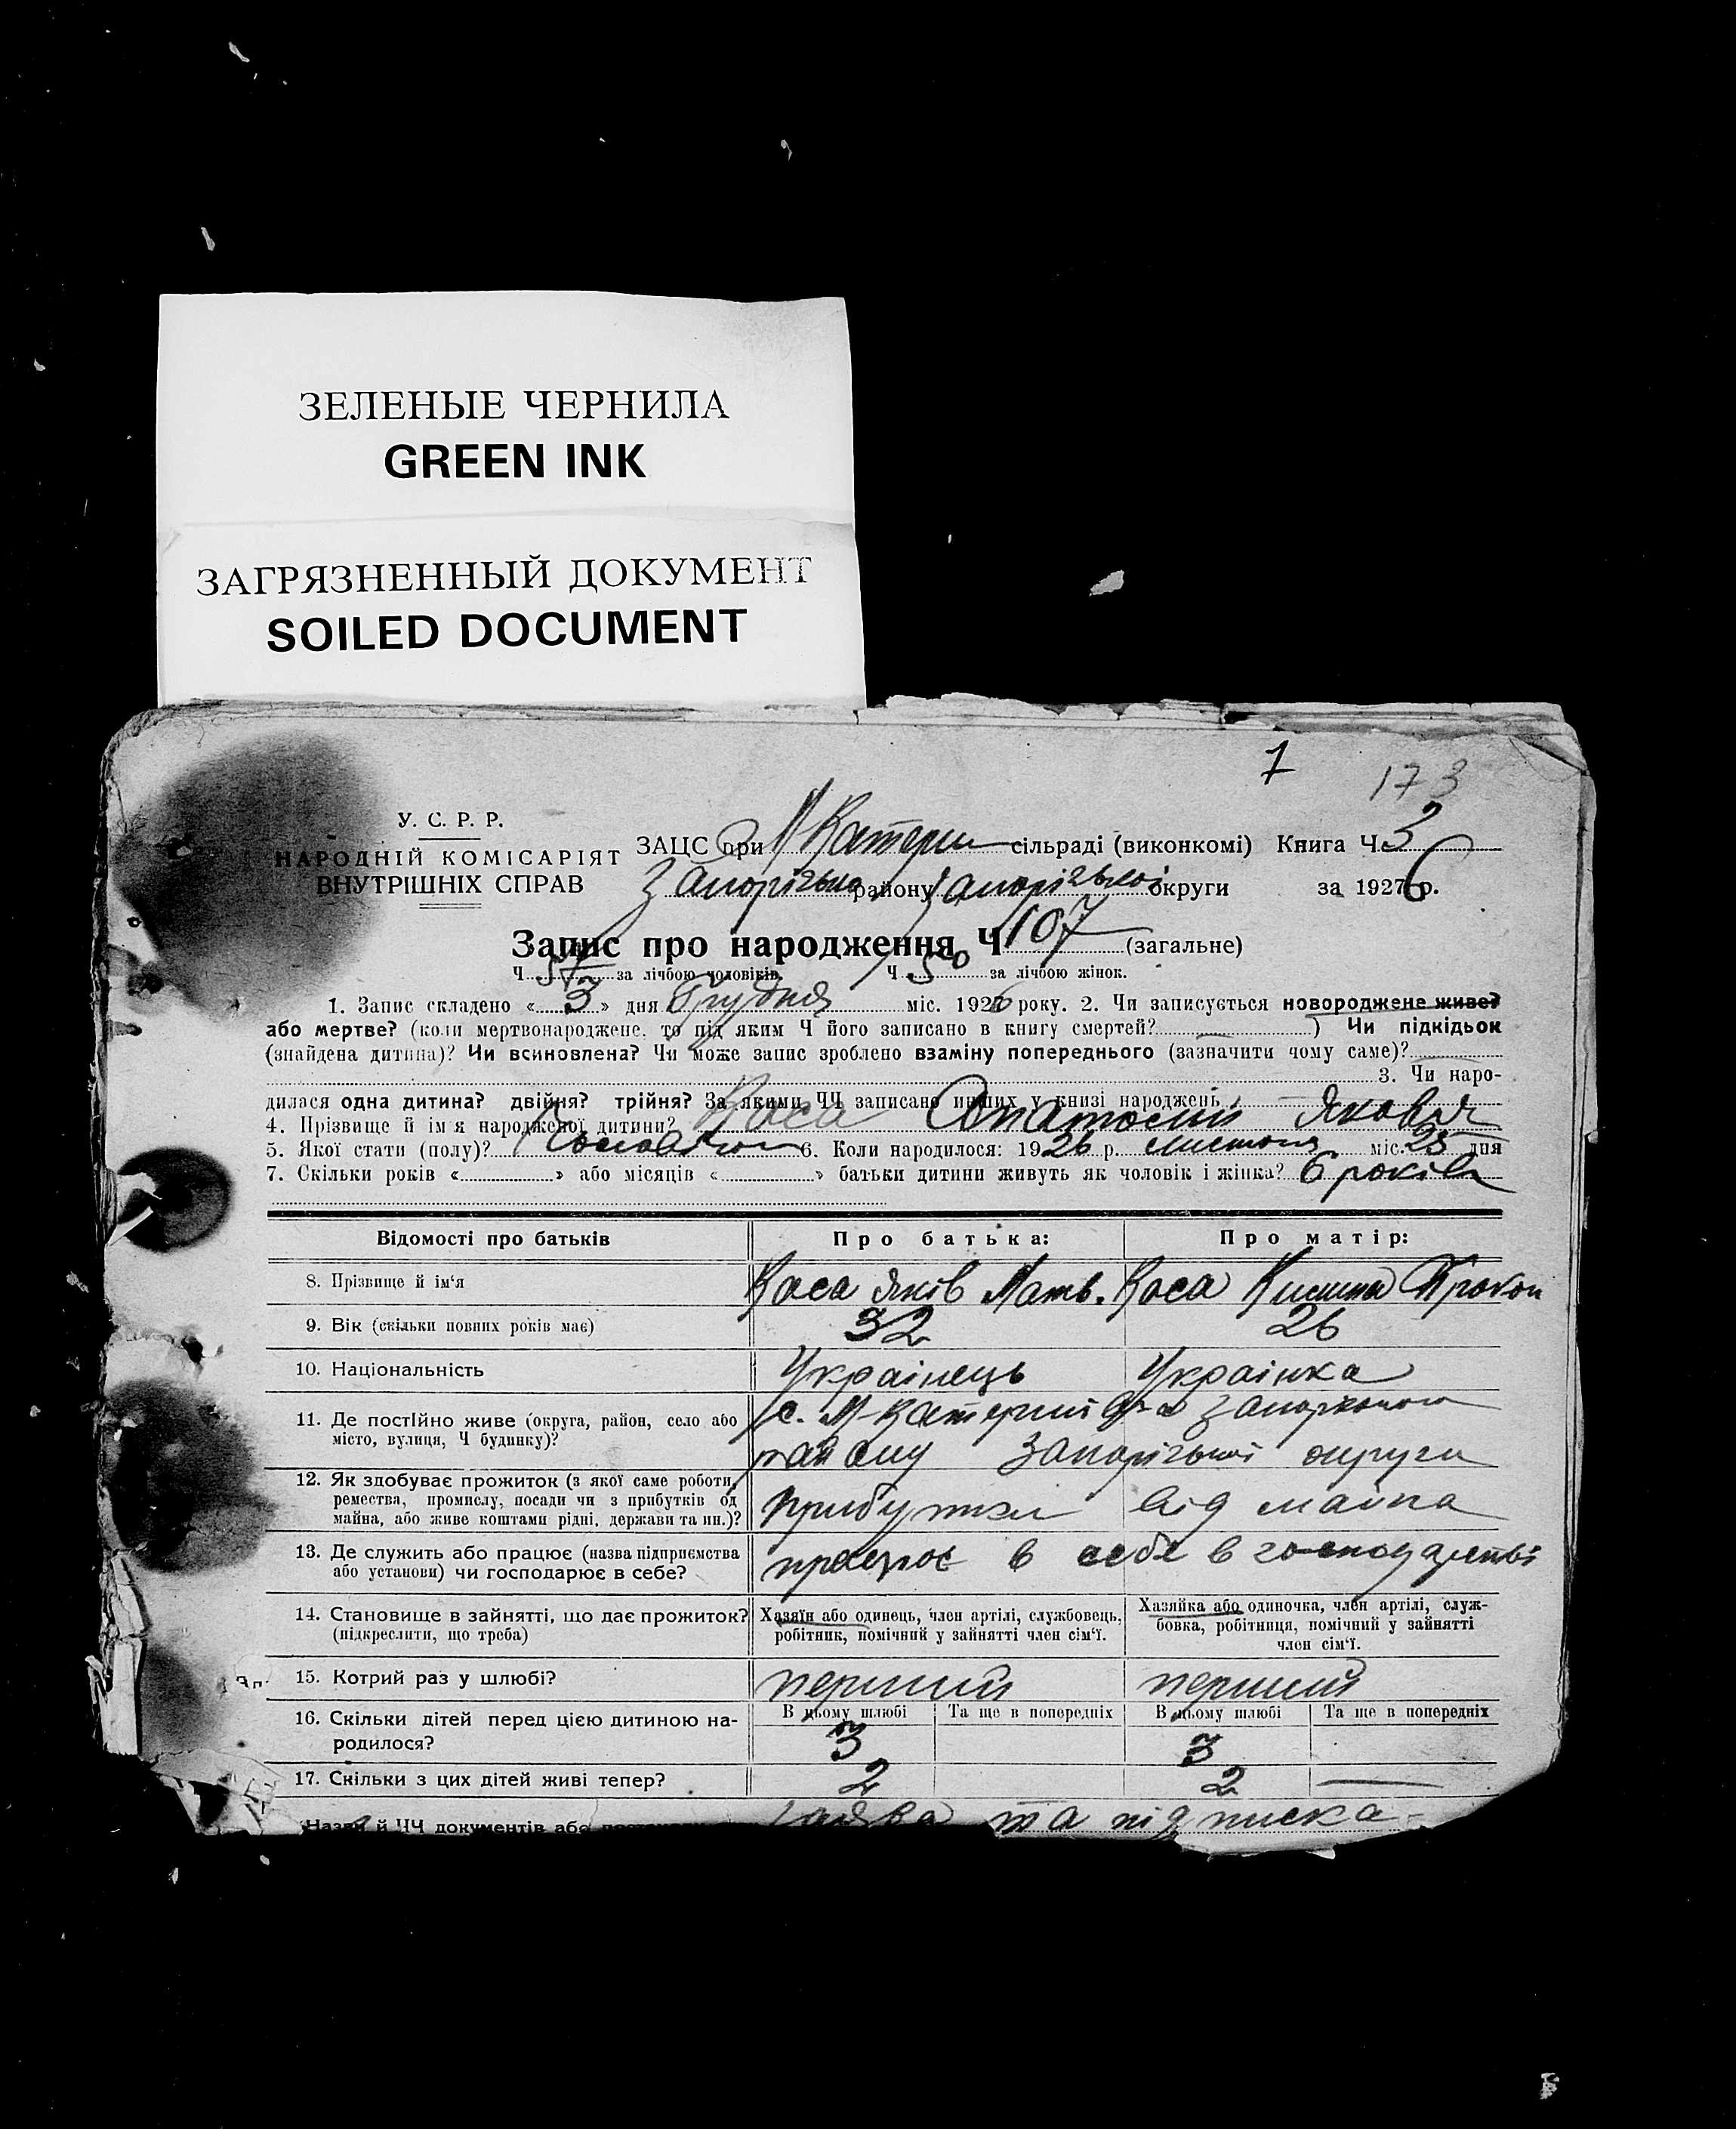 ЗЕЛЕНЫЕ ЧЕРНИЛА
GREEN INK
ЗАГРЯЗНЕННЫЙ ДОКУМЕНТ
SOILED DOCUMENT
1
173
У. С. Р. Р.
НАРОДНІЙ КОМІСАРІЯТ
ВНУТРІШНІХ СПРАВ
ЗАЦС при М Катери сільраді (виконкомі) Книга Ч. 3
району округи за 1926 р.
Запис про народження Ч 107 (загальне)
Ч 57 за лічбою чоловіків. Ч 50 за лічбою жінок.
1. Запис складено «3» дня Грудня міс. 1926 року. 2. Чи записується новороджене живе?
або мертве? (коли мертвонароджене, то під яким Ч його записано в книгу смертей? ) Чи підкідьок
(знайдена дитина)? Чи всиновлена? Чи може запис зроблено взаміну попереднього (зазначити чому саме)?
3. Чи наро-
дилася одна дитина? двійня? трійня? За якими ЧЧ записано инших у книзі народжень
4. Прізвище й ім'я народженої дитини? Коса Анатолій Яковл
5. Якої стати (полу)? 6. Коли народилося: 1926 р. листопа міс. 25 дня
7. Скільки років « » або місяців « » батьки дитини живуть як чоловік і жінка? 6 років
Відомості про батьків Про батька: Про матір:
8. Прізвище й ім'я Коса Яків Матв. Коса Прокоп
9. Вік (скільки повних років має) 32 26
10. Національність Украінець Украінка
11. Де постійно живе (округа, район, село або
місто, вулиця, Ч будинку)?
с. М-Катери
району Запорізької округи
12. Як здобуває прожиток (з якої саме роботи,
ремества, промислу, посади чи з прибутків од
майна, або живе коштами рідні, держави та ин.)?
прибутки від майна
13. Де служить або працює (назва підприємства
або установи) чи господарює в себе?
працює в себе в господарстві
14. Становище в зайнятті, що дає прожиток?
(підкреслити, що треба)
Хазяїн або одинець, член артілі, службовець,
робітник, помічний у зайнятті член сім'ї.
Хазяйка або одиночка, член артілі, служ-
бовка, робітниця, помічний у зайнятті
член сім'ї.
15. Котрий раз у шлюбі? перший перший
16. Скільки дітей перед цією дитиною на-
родилося?
В цьому шлюбі Та ще в попередніх В цьому шлюбі Та ще в попередніх
3 3
17. Скільки з цих дітей живі тепер? 2 2
Назви й ЧЧ документів або заява та підписка